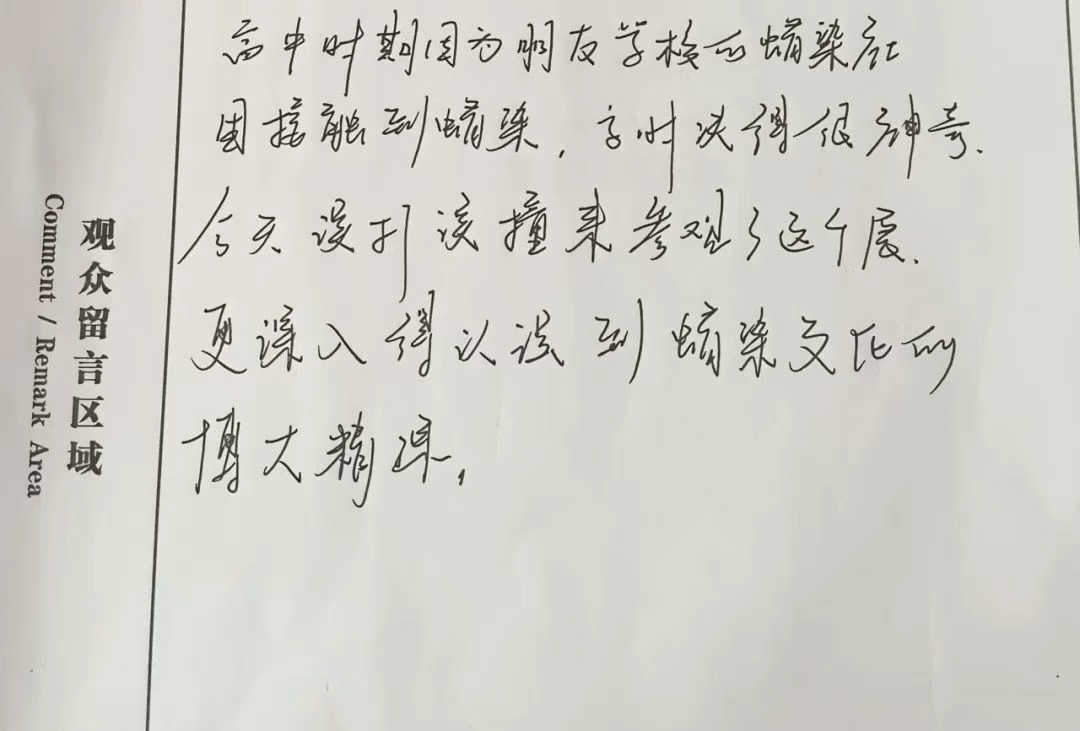 观众留言区域
Comment / Remark Area
高中时期因为朋友学校的蜡染社
团接触到蜡染，当时觉得很神奇.
今天误打误撞来参观了这个展.
更深入得认识到蜡染文化的
博大精深，